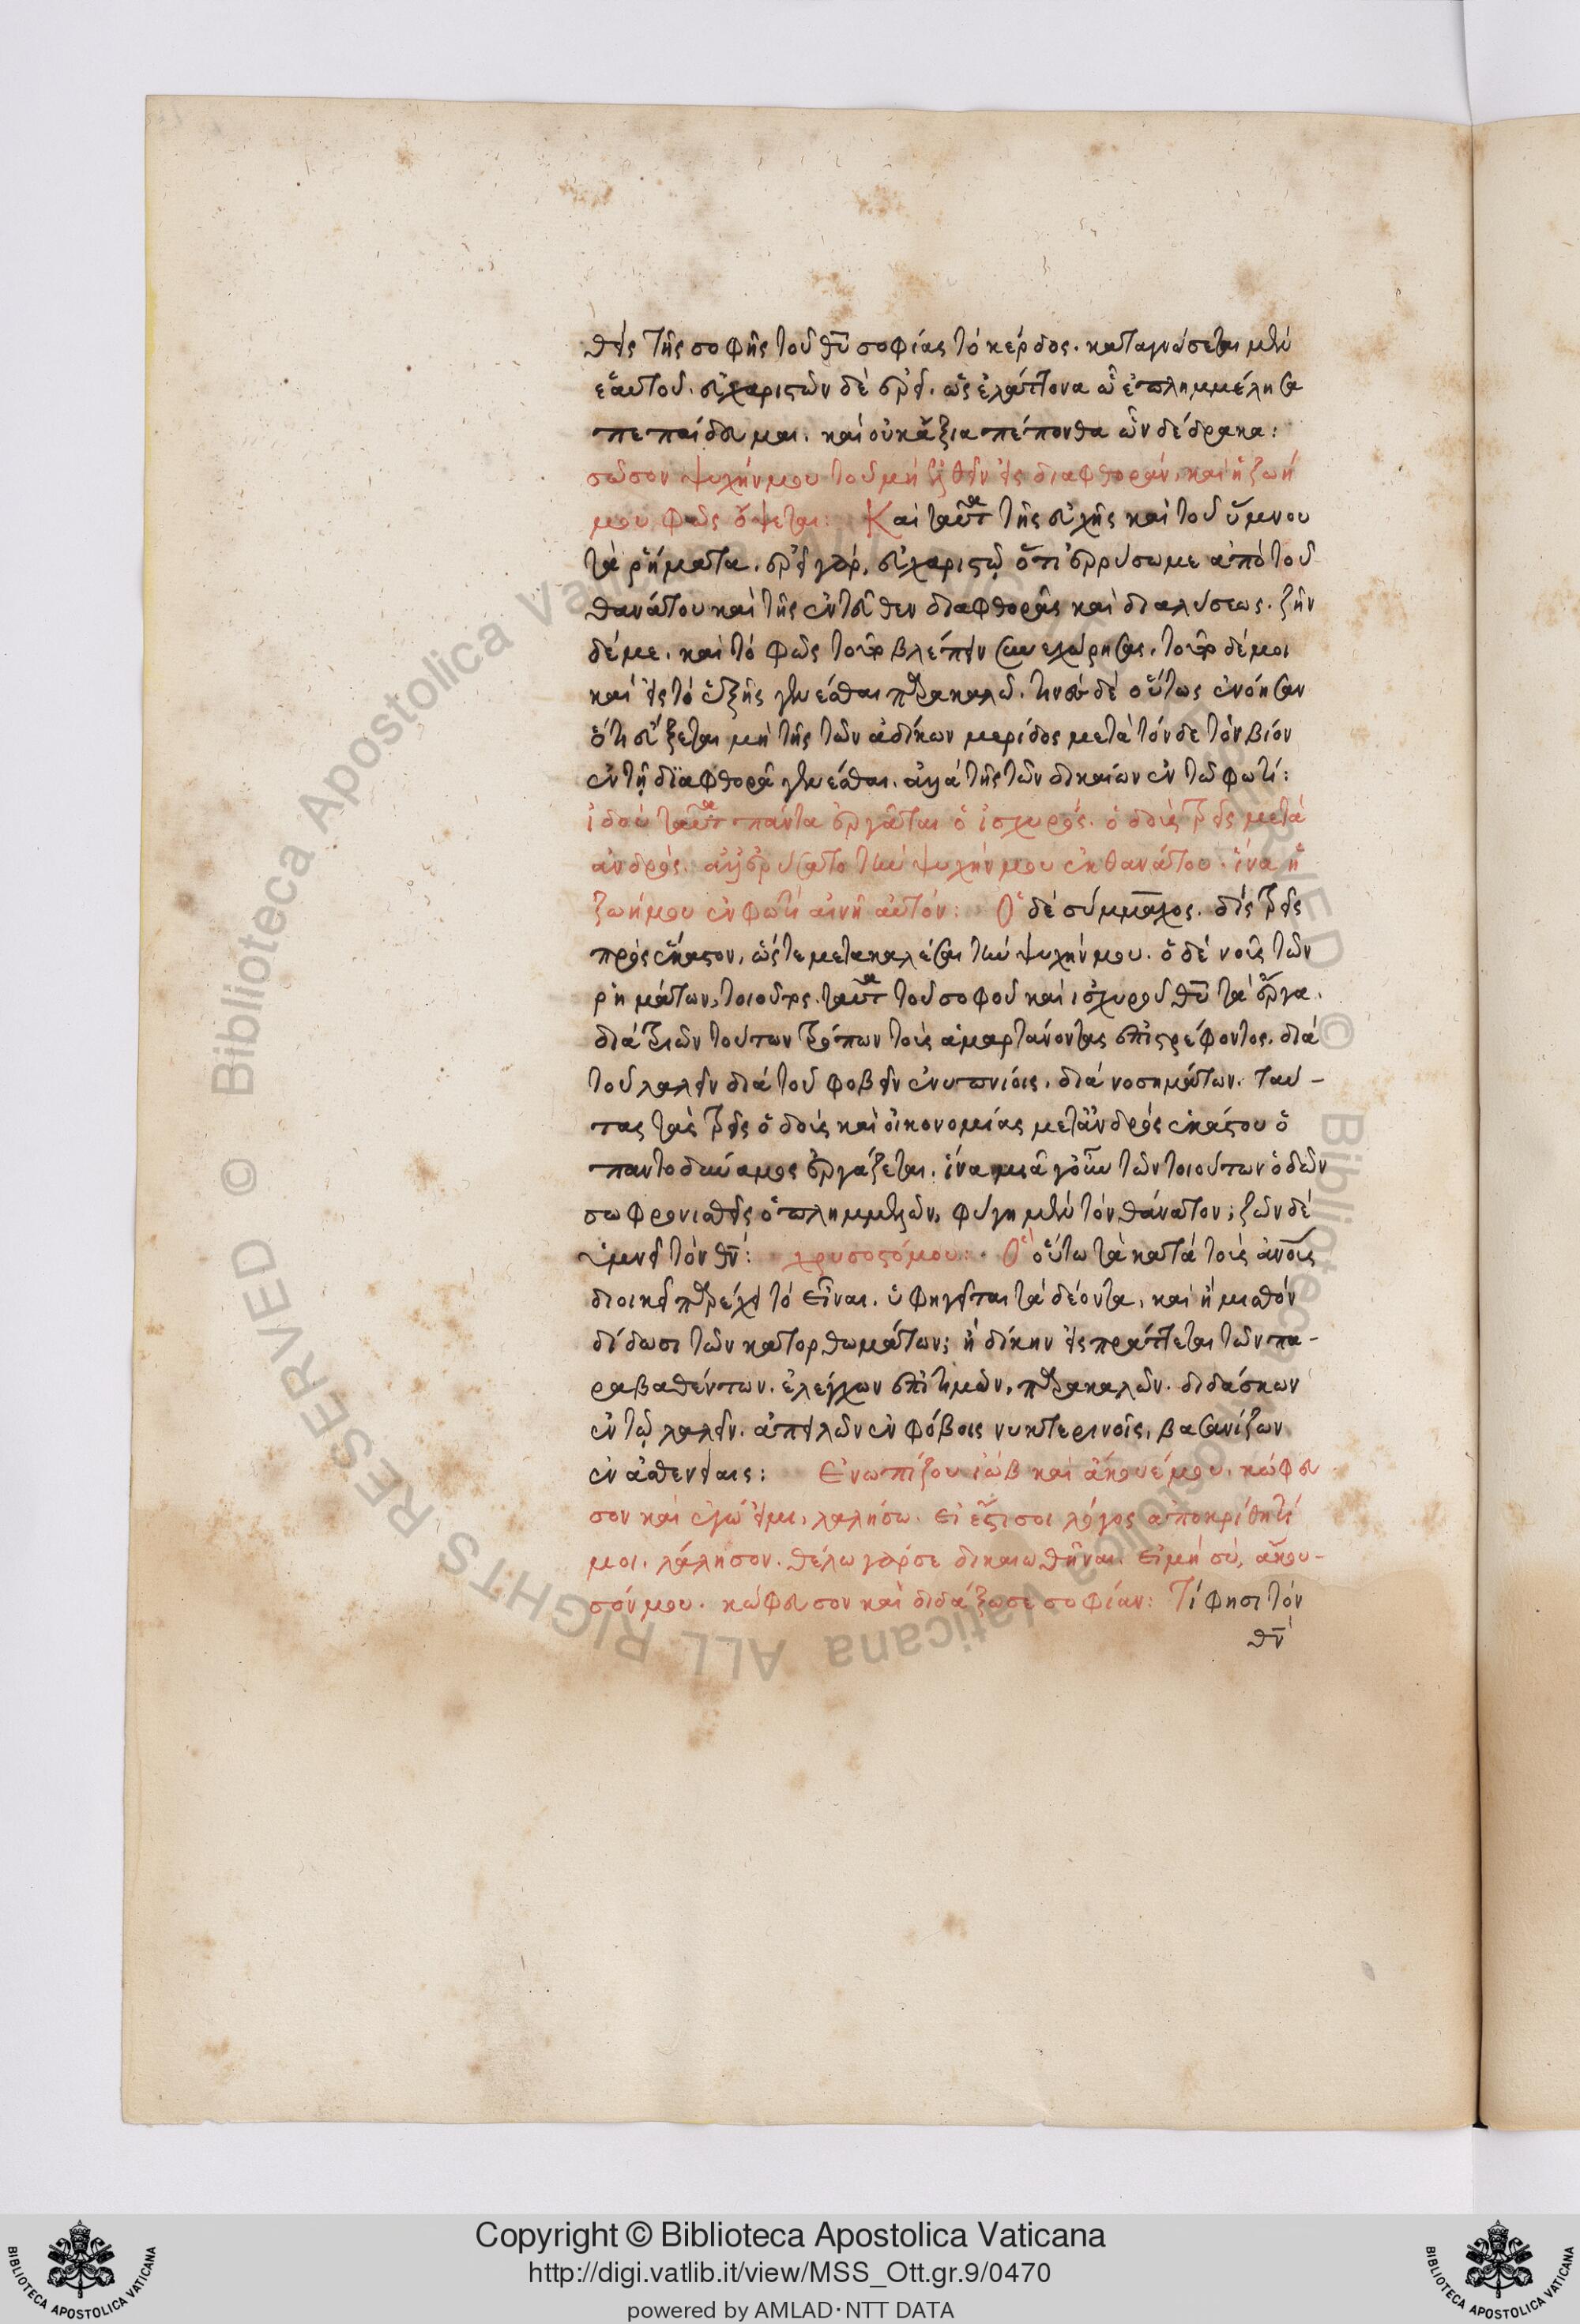 θεὶς τῆς σοφῆς τοῦ θυ σοφίας τὸ κέρδος. καταγνώσεται μὲν
ἑαυτοῦ. εὐχαριστῶν δὲ ἐρεῖ. ὡς ἐλάττονα ὧν ἐπλημμέλησα
πεπαίδευμαι. καὶ οὐκ ἄξια πέπονθα ὧν δέδρακα:
σῶσον ψυχήν μου τοῦ μὴ ἐλθεῖν εἰς διαφθοράν, καὶ ἡ ζωή
μου φῶς ὄψεται: Καὶ ταῦτα τῆς εὐχῆς καὶ τοῦ ὕμνου
τὰ ῥήματα. ἐρεῖ γάρ, εὐχαριστῶ ὅτι ἐρρύσω με ἀπὸ τοῦ
θανάτου καὶ τῆς ἐντεῦθεν διαφθορᾶς καὶ διαλύσεως. ζῆν
δέ με. καὶ τὸ φῶς τοῦτο βλέπειν συνεχώρησας. τοῦτο δέ μοι
καὶ εἰς τὸ ἑξῆς γενέσθαι παρακαλῶ. τινὲς δὲ οὕτως ἐνόησαν
ὅτι εὔξεται μὴ τῆς τῶν ἀδίκων μερίδος μετὰ τόνδε τὸν βίον
ἐν τῇ διαφθορᾷ γενέσθαι. ἀλλὰ τῆς τῶν δικαίων ἐν τῷ φωτί:
ἰδοὺ ταῦτα πάντα ἐργᾶται ὁ ἰσχυρός. ὁδοὺς τρεῖς μετὰ
ἀνδρός. ἀλλ' ἐρύσατο τὴν ψυχήν μου ἐκ θανάτου. ἵνα ἡ
ζωή μου ἐν φωτὶ αἰνῇ αὐτόν: Ὁ δὲ σύμμαχος. δὶς τρεῖς
πρὸς ἕκαστον, ὥστε μετακαλέσαι τὴν ψυχήν μου. ὁ δὲ νοῦς τῶν
ρημάτων, τοιοῦτος. ταῦτα τοῦ σοφοῦ καὶ ἰσχυροῦ θυ τὰ ἔργα.
διὰ τριῶν τούτων τρόπων τοὺς ἁμαρτάνοντας ἐπιστρέφοντος. διὰ
τοῦ λαλεῖν διὰ τοῦ φοβεῖν ἐνυπνίοις. διὰ νοσημάτων. ταύ-
τας τὰς τρεῖς ὁδοὺς καὶ οἰκονομίας μετ' ἀνδρὸς ἑκάστου ὁ
παντοδύναμος ἐργάζεται. ἵνα μιᾷ γοῦν τῶν τοιούτων ὁδῶν
σωφρονισθεὶς ὁ πλημμελῶν, φύγῃ μὲν τὸν θάνατον; ζῶν δὲ
ὑμνεῖ τὸν θν: χρυσοστόμου: Ὁ οὕτω τὰ κατὰ τοὺς ἀνους
διοικεῖ παρέχει τὸ εἶναι. ὑφηγεῖται τὰ δέοντα, καὶ ἢ μισθὸν
δίδωσι τῶν κατορθωμάτων; ἢ δίκην εἰσπράττεται τῶν πα-
ραβαθέντων. ἐλέγχων ἐπιτιμῶν, παρακαλῶν. διδάσκων
ἐν τῷ λαλεῖν. ἀπειλῶν ἐν φόβοις νυκτερινοῖς, βασανίζων
ἐν ἀσθενείαις: Ἐνωτίζου ἰὼβ καὶ ἄκουέ μου. κώφευ
σον καὶ ἐγώ εἰμι, λαλήσω. εἰ ἔστι σοι λόγος ἀποκρίθητί
μοι. λάλησον. θέλω γάρ σε δικαιωθῆναι. εἰ μὴ σύ, ἄκου-
σόν μου. κώφευσον καὶ διδάξω σε σοφίαν: Τί φησι τὸν
θν